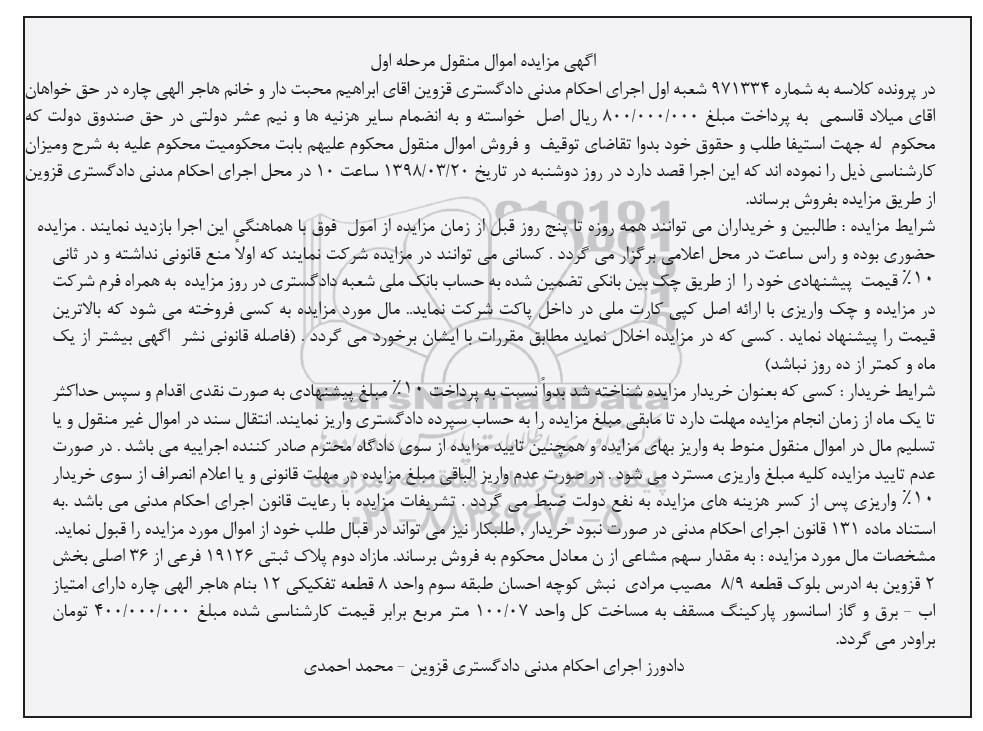 اگهی مزایده اموال منقول مرحله اول
در پرونده کلاسه به شماره ۹۷۱۳۳۴ شعبه اول اجرای احکام مدنی دادگستری قزوین اقای ابراهیم محبت دار و خانم هاجر الهی چاره در حق خواهان
اقای میلاد قاسمی به پرداخت مبلغ ۸۰۰/۰۰۰/۰۰۰ ریال اصل خواسته و به انضمام سایر هزنیه ها و نیم عشر دولتی در حق صندوق دولت که
محکوم له جهت استیفا طلب و حقوق خود بدوا تقاضای توقیف و فروش اموال منقول محکوم علیهم بابت محکومیت محکوم علیه به شرح ومیزان
کارشناسی ذیل را نموده اند که این اجرا قصد دارد در روز دوشنبه در تاریخ ۱۳۹۸/۰۳/۲۰ ساعت ۱۰ در محل اجرای احکام مدنی دادگستری قزوین
از طریق مزایده بفروش برساند.
شرایط مزایده : طالبین و خریداران می توانند همه روزه تا پنج روز قبل از زمان مزایده از امول فوق با هماهنگی این اجرا بازدید نمایند . مزایده
حضوری بوده و راس ساعت در محل اعلامی برگزار می گردد . کسانی می توانند در مزایده شرکت نمایند که اولاً منع قانونی نداشته و در ثانی
۱۰٪ قیمت پیشنهادی خود را از طریق چک بین بانکی تضمین شده به حساب بانک ملی شعبه دادگستری در روز مزایده به همراه فرم شرکت
در مزایده و چک واریزی با ارائه اصل کپی کارت ملی در داخل پاکت شرکت نماید.. مال مورد مزایده به کسی فروخته می شود که بالاترین
قیمت را پیشنهاد نماید . کسی که در مزایده اخلال نماید مطابق مقررات با ایشان برخورد می گردد . (فاصله قانونی نشر اگهی بیشتر از یک
ماه و کمتر از ده روز نباشد)
شرایط خریدار : کسی که بعنوان خریدار مزایده شناخته شد بدواً نسبت به پرداخت ۱۰٪ مبلغ پیشنهادی به صورت نقدی اقدام و سپس حداکثر
تا یک ماه از زمان انجام مزایده مهلت دارد تا مابقی مبلغ مزایده را به حساب سپرده دادگستری واریز نمایند. انتقال سند در اموال غیر منقول و یا
تسلیم مال در اموال منقول منوط به واریز بهای مزایده و همچنین تایید مزایده از سوی دادگاه محترم صادر کننده اجراییه می باشد . در صورت
عدم تایید مزایده کلیه مبلغ واریزی مسترد می شود . در صورت عدم واریز الباقی مبلغ مزایده در مهلت قانونی و یا اعلام انصراف از سوی خریدار
۱۰٪ واریزی پس از کسر هزینه های مزایده به نفع دولت ضبط می گردد . تشریفات مزایده با رعایت قانون اجرای احکام مدنی می باشد .به
استناد ماده ۱۳۱ قانون اجرای احکام مدنی در صورت نبود خریدار , طلبکار نیز می تواند در قبال طلب خود از اموال مورد مزایده را قبول نماید.
مشخصات مال مورد مزایده : به مقدار سهم مشاعی از ن معادل محکوم به فروش برساند. مازاد دوم پلاک ثبتی ۱۹۱۲۶ فرعی از ۳۶ اصلی بخش
۲ قزوین به ادرس بلوک قطعه ۸/۹ مصیب مرادی نبش کوچه احسان طبقه سوم واحد ۸ قطعه تفکیکی ۱۲ بنام هاجر الهی چاره دارای امتیاز
اب - برق و گاز اسانسور پارکینگ مسقف به مساحت کل واحد ۱۰۰/۰۷ متر مربع برابر قیمت کارشناسی شده مبلغ ۴۰۰/۰۰۰/۰۰۰ تومان
براودر می گردد.
دادورز اجرای احکام مدنی دادگستری قزوین - محمد احمدی
ParsNamadData
۰۲۱-۸۸۳۴۹۶۷۰-۵